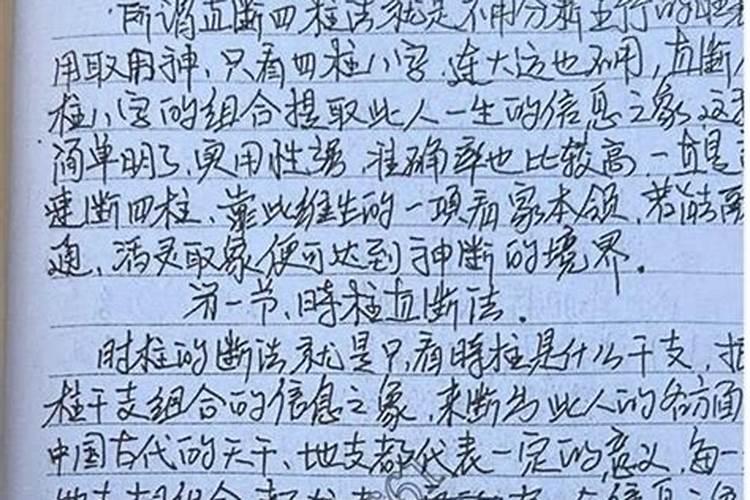 所谓直断四柱法就是不用分析五行的旺
用取用神、只看四柱八字、连大运也不用,直断
柱八字的组合提取此人一生的信息之象、这
简单明了、实用性强、准确率也比较高、一直是
速断四柱、靠此维生的一项看家本领、若能
通、活灵取象便可达到神断的境界.
第一节、時柱直断法.
时柱的断法就是只看時柱是什么干支,
柱干支组合的信息之象、来断出此人的各方面
中国古代的天干、地支都代表一定的意义,每一
地支